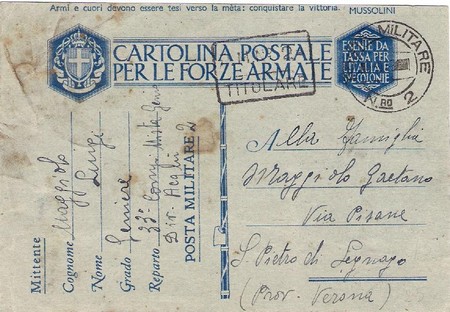 Armi e cuori devono essere tesi verso la mèta: conquistare la vittoria. MUSSOLINI
CARTOLINA POSTALE
PER LE FORZE ARMATE
ESENTE DA
TASSA PER
L'ITALIA E
COLONIE
TITOLARE
MILITARE
N. 80
2
Mittente
Cognome Maggiolo
Nome Luigi
Grado Geniere
Reparto 33ª Comp. Mista Genio
Div. Acqui
POSTA MILITARE 2
Alla Famiglia
Maggiolo Gaetano
Via Pisane
S. Pietro di Legnago
(Prov. Verona)